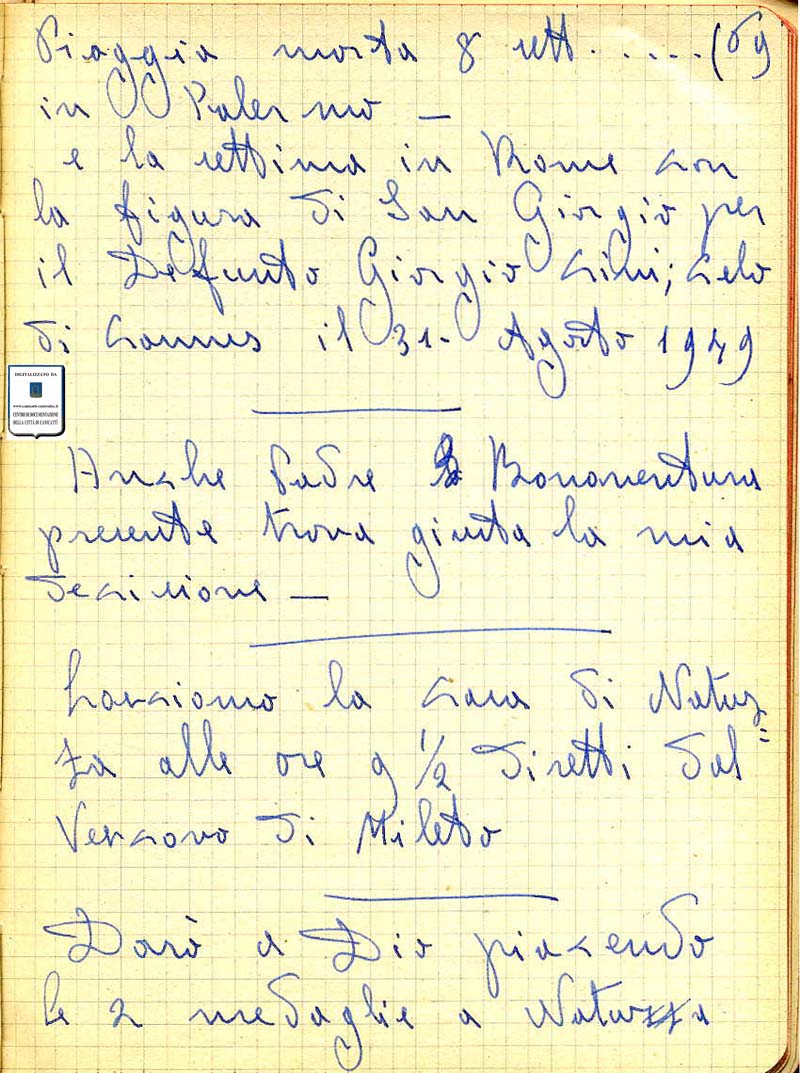 Piaggia morta 8 sett. . . . . . (59
in Palermo —
e la settima in Rame con
la figura di San Giorgio per
il Defunto Giorgio Cini; cielo
di Cannes il 31- Agosto 1949
DIGITALIZZATO DA
www.canicatti-centrodoc.it
CENTRO DI DOCUMENTAZIONE
DELLA CITTÀ DI CANICATTÌ
Anche Padre Bonaventura
presente trova giusta la mia
decisione —
Lasciamo la casa di Natuz=
za alle ore 9 1/2 diretti dal
Vescovo di Mileto
Darò a Dio piacendo
le 2 medaglie a Natuzza